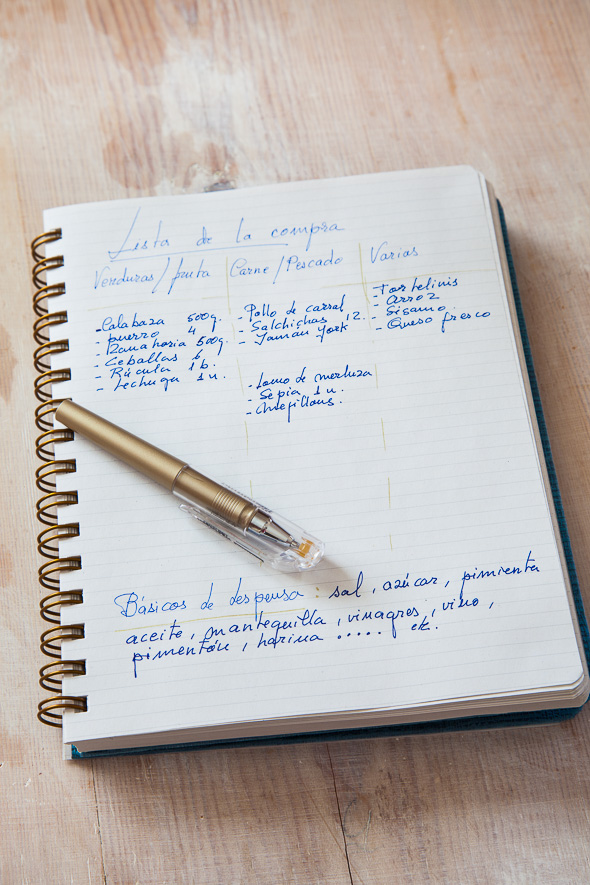 Lista de la compra
Verduras/fruta
- Calabaza 500g.
- puerro 4
- Zanahoria 500g.
- Cebollas 6
- Rúcula 1 b.
- Lechuga 1 u.
Carne/Pescado
- Pollo de corral
- Salchichas 12.
- Jamón York
- Lomo de merluza
- Sepia 1 u.
Varias
- Tortelinis
- Arroz
- Sésamo
- Queso fresco
Básicos de despensa : sal, azúcar, pimienta
aceite, mantequilla, vinagres, vino,
pimentón, harina ..... etc.